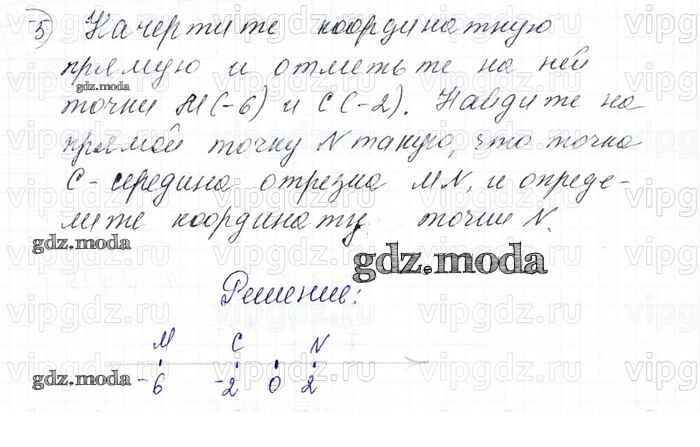 5) Начертите координатную
прямую и отметьте на ней
gdz.moda
точки M(-6) и C(-2). Найдите на
прямой точку N такую, что точка
C-середина отрезка MN, и опреде-
лите координату точки N.
gdz.moda
gdz.moda
Решение:
M C N
gdz.moda
-6 -2 0 2
vipgdz.ru